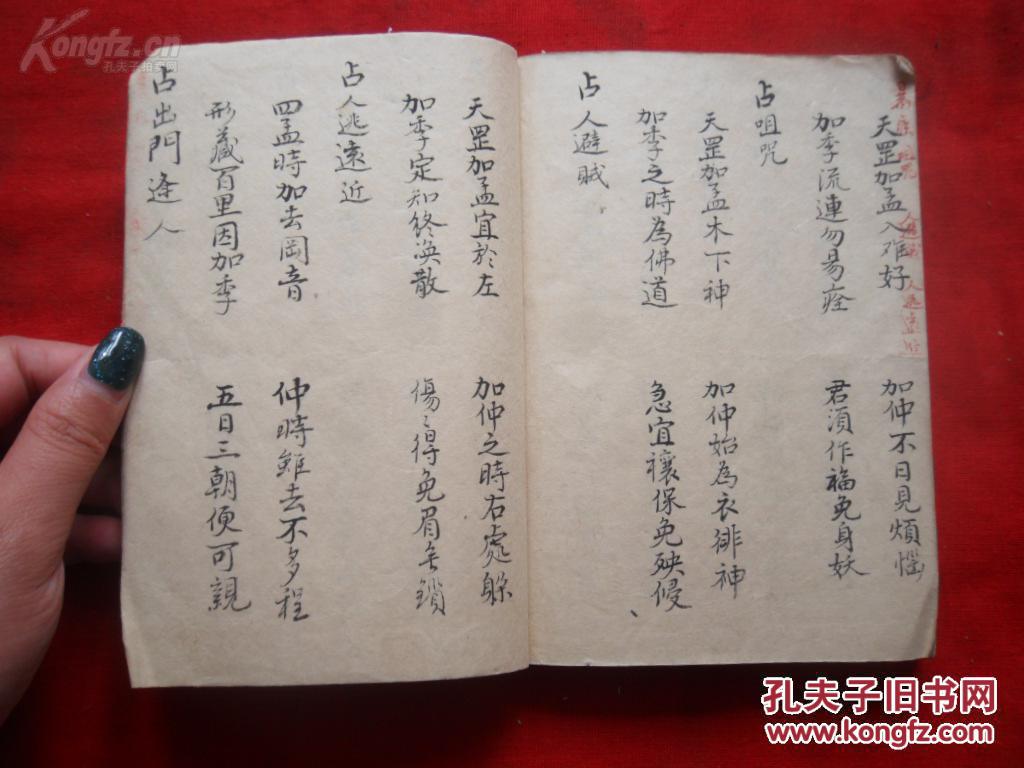 天罡加孟人难好
加仲不日見煩惱
加季流連勿易痊
君須作福免身妖
占咀咒
天罡加孟木下神
加仲始為衣徘神
加季之時為佛道
急宜禳保免殃侵
占人避賊
天罡加孟宜於左
加仲之時右處躲
加季定知終渙散
傷〻得免眉無鎖
占人逃遠近
四孟時加去岡音
仲時雖去不多程
形藏百里因加季
五日三朝便可親
占出門逢人
人逃遠近
Kongfz.cn
孔夫子拍卖网
孔夫子旧书网
KONGFZ.COM